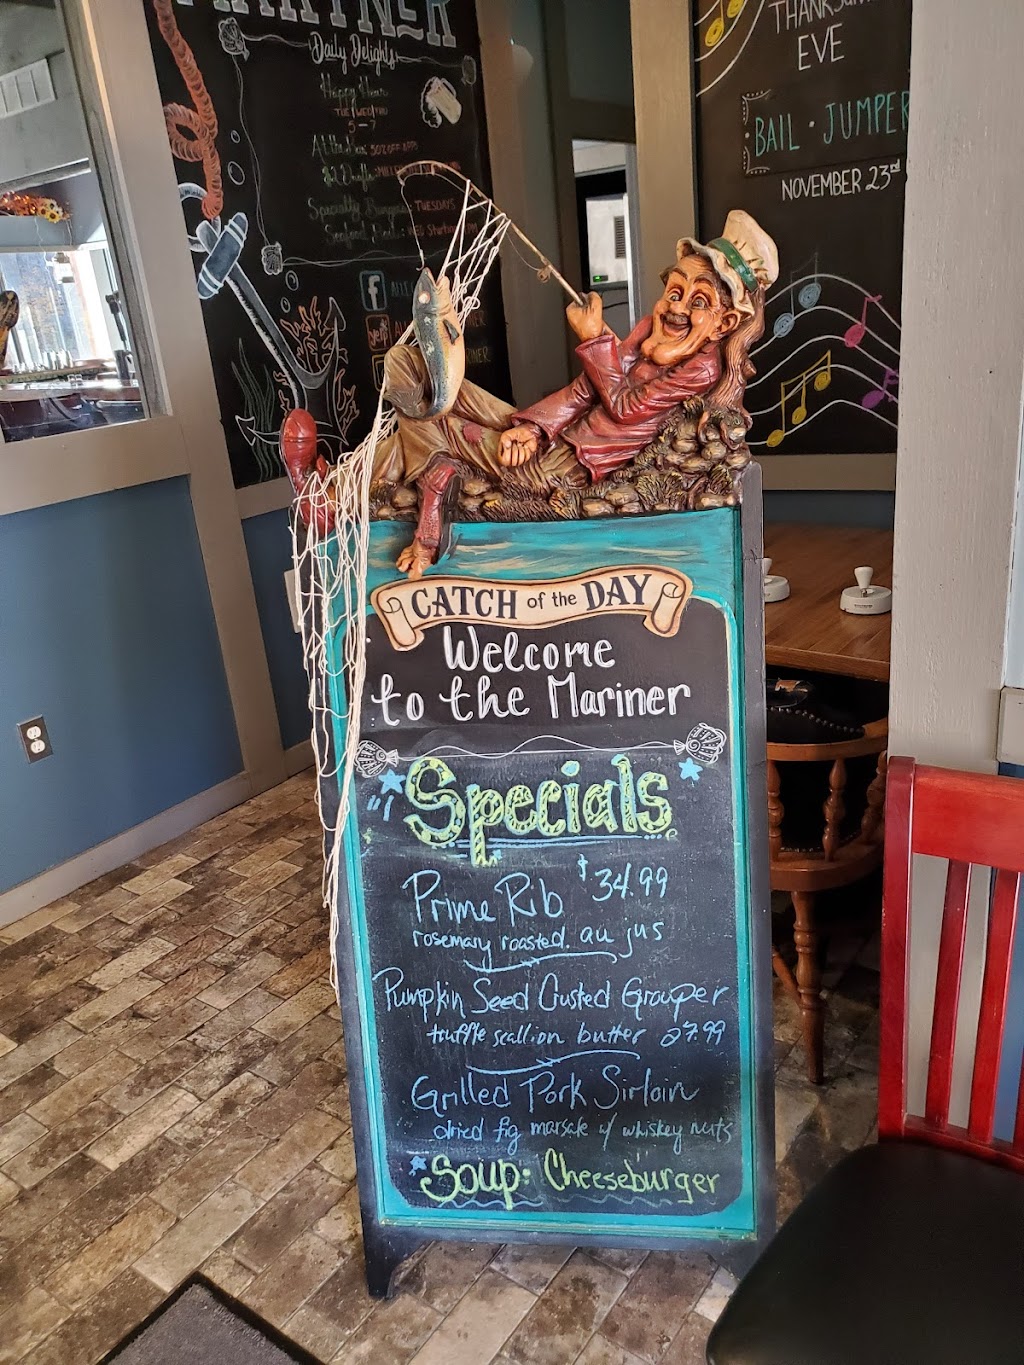 Daily Delights
Happy Hour
TUE/WED/THU
5-7
At the Bar 50% OFF APPS
Specialty Burgers: TUESDAYS
THANKS
EVE
BAIL · JUMPER
NOVEMBER 23rd
f
yelp
CATCH of the DAY
Welcome
to the Mariner
Specials
Prime Rib $34.99
rosemary roasted. au jus
Pumpkin Seed Crusted Grouper
truffle scallion butter 27.99
Grilled Pork Sirloin
dried fig marsala w/ whiskey nuts
Soup: Cheeseburger